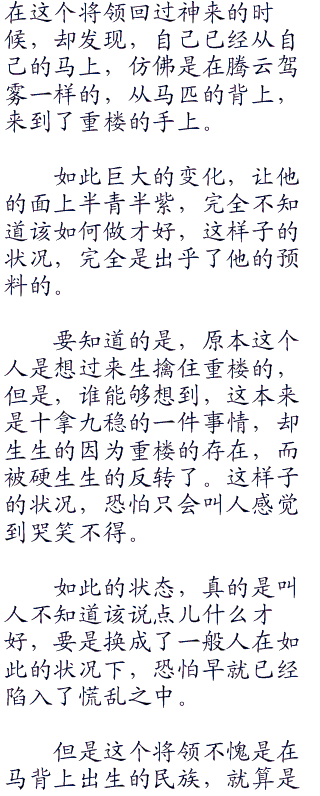 在这个将领回过神来的时
候，却发现，自己已经从自
己的马上，仿佛是在腾云驾
雾一样的，从马匹的背上，
来到了重楼的手上。
如此巨大的变化，让他
的面上半青半紫，完全不知
道该如何做才好，这样子的
状况，完全是出乎了他的预
料的。
要知道的是，原本这个
人是想过来生擒住重楼的，
但是，谁能够想到，这本来
是十拿九稳的一件事情，却
生生的因为重楼的存在，而
被硬生生的反转了。这样子
的状况，恐怕只会叫人感觉
到哭笑不得。
如此的状态，真的是叫
人不知道该说点儿什么才
好，要是换成了一般人在如
此的状况下，恐怕早就已经
陷入了慌乱之中。
但是这个将领不愧是在
马背上出生的民族，就算是